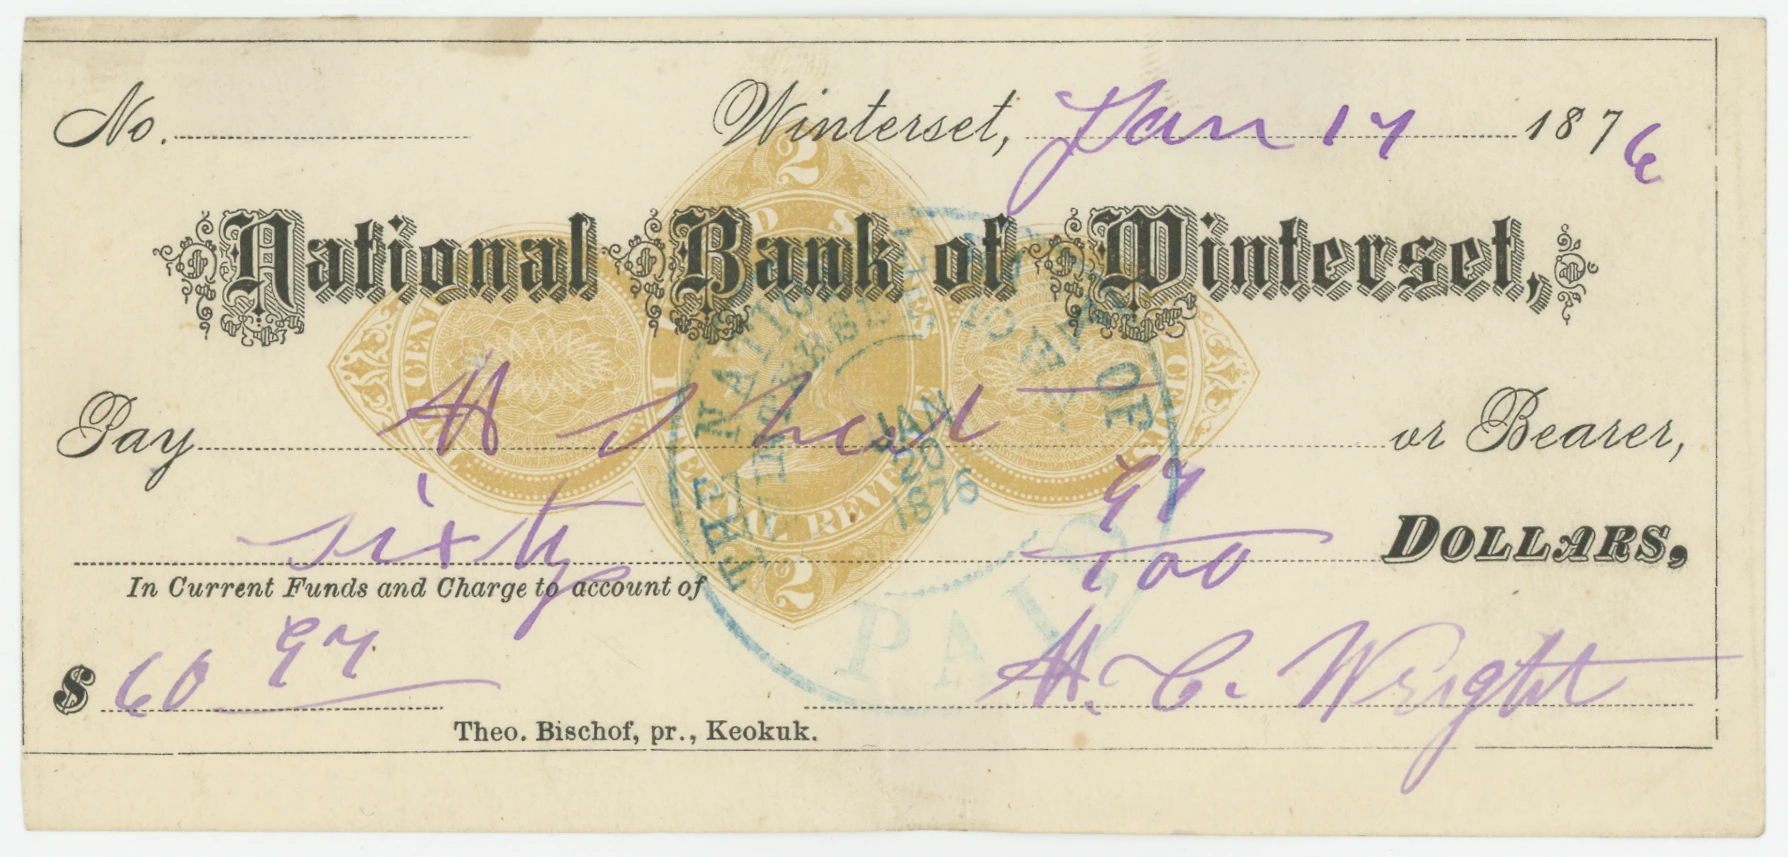 No. Winterset, Jan 17 1876
National Bank of Winterset,
Pay or Bearer,
sixty 97/100 DOLLARS,
In Current Funds and Charge to account of
$ 60 97
H. C. Wright
Theo. Bischof, pr., Keokuk.
2
UNITED STATES INTERNAL REVENUE
2
THE NATIONAL OF
JAN
20
1876
PAID